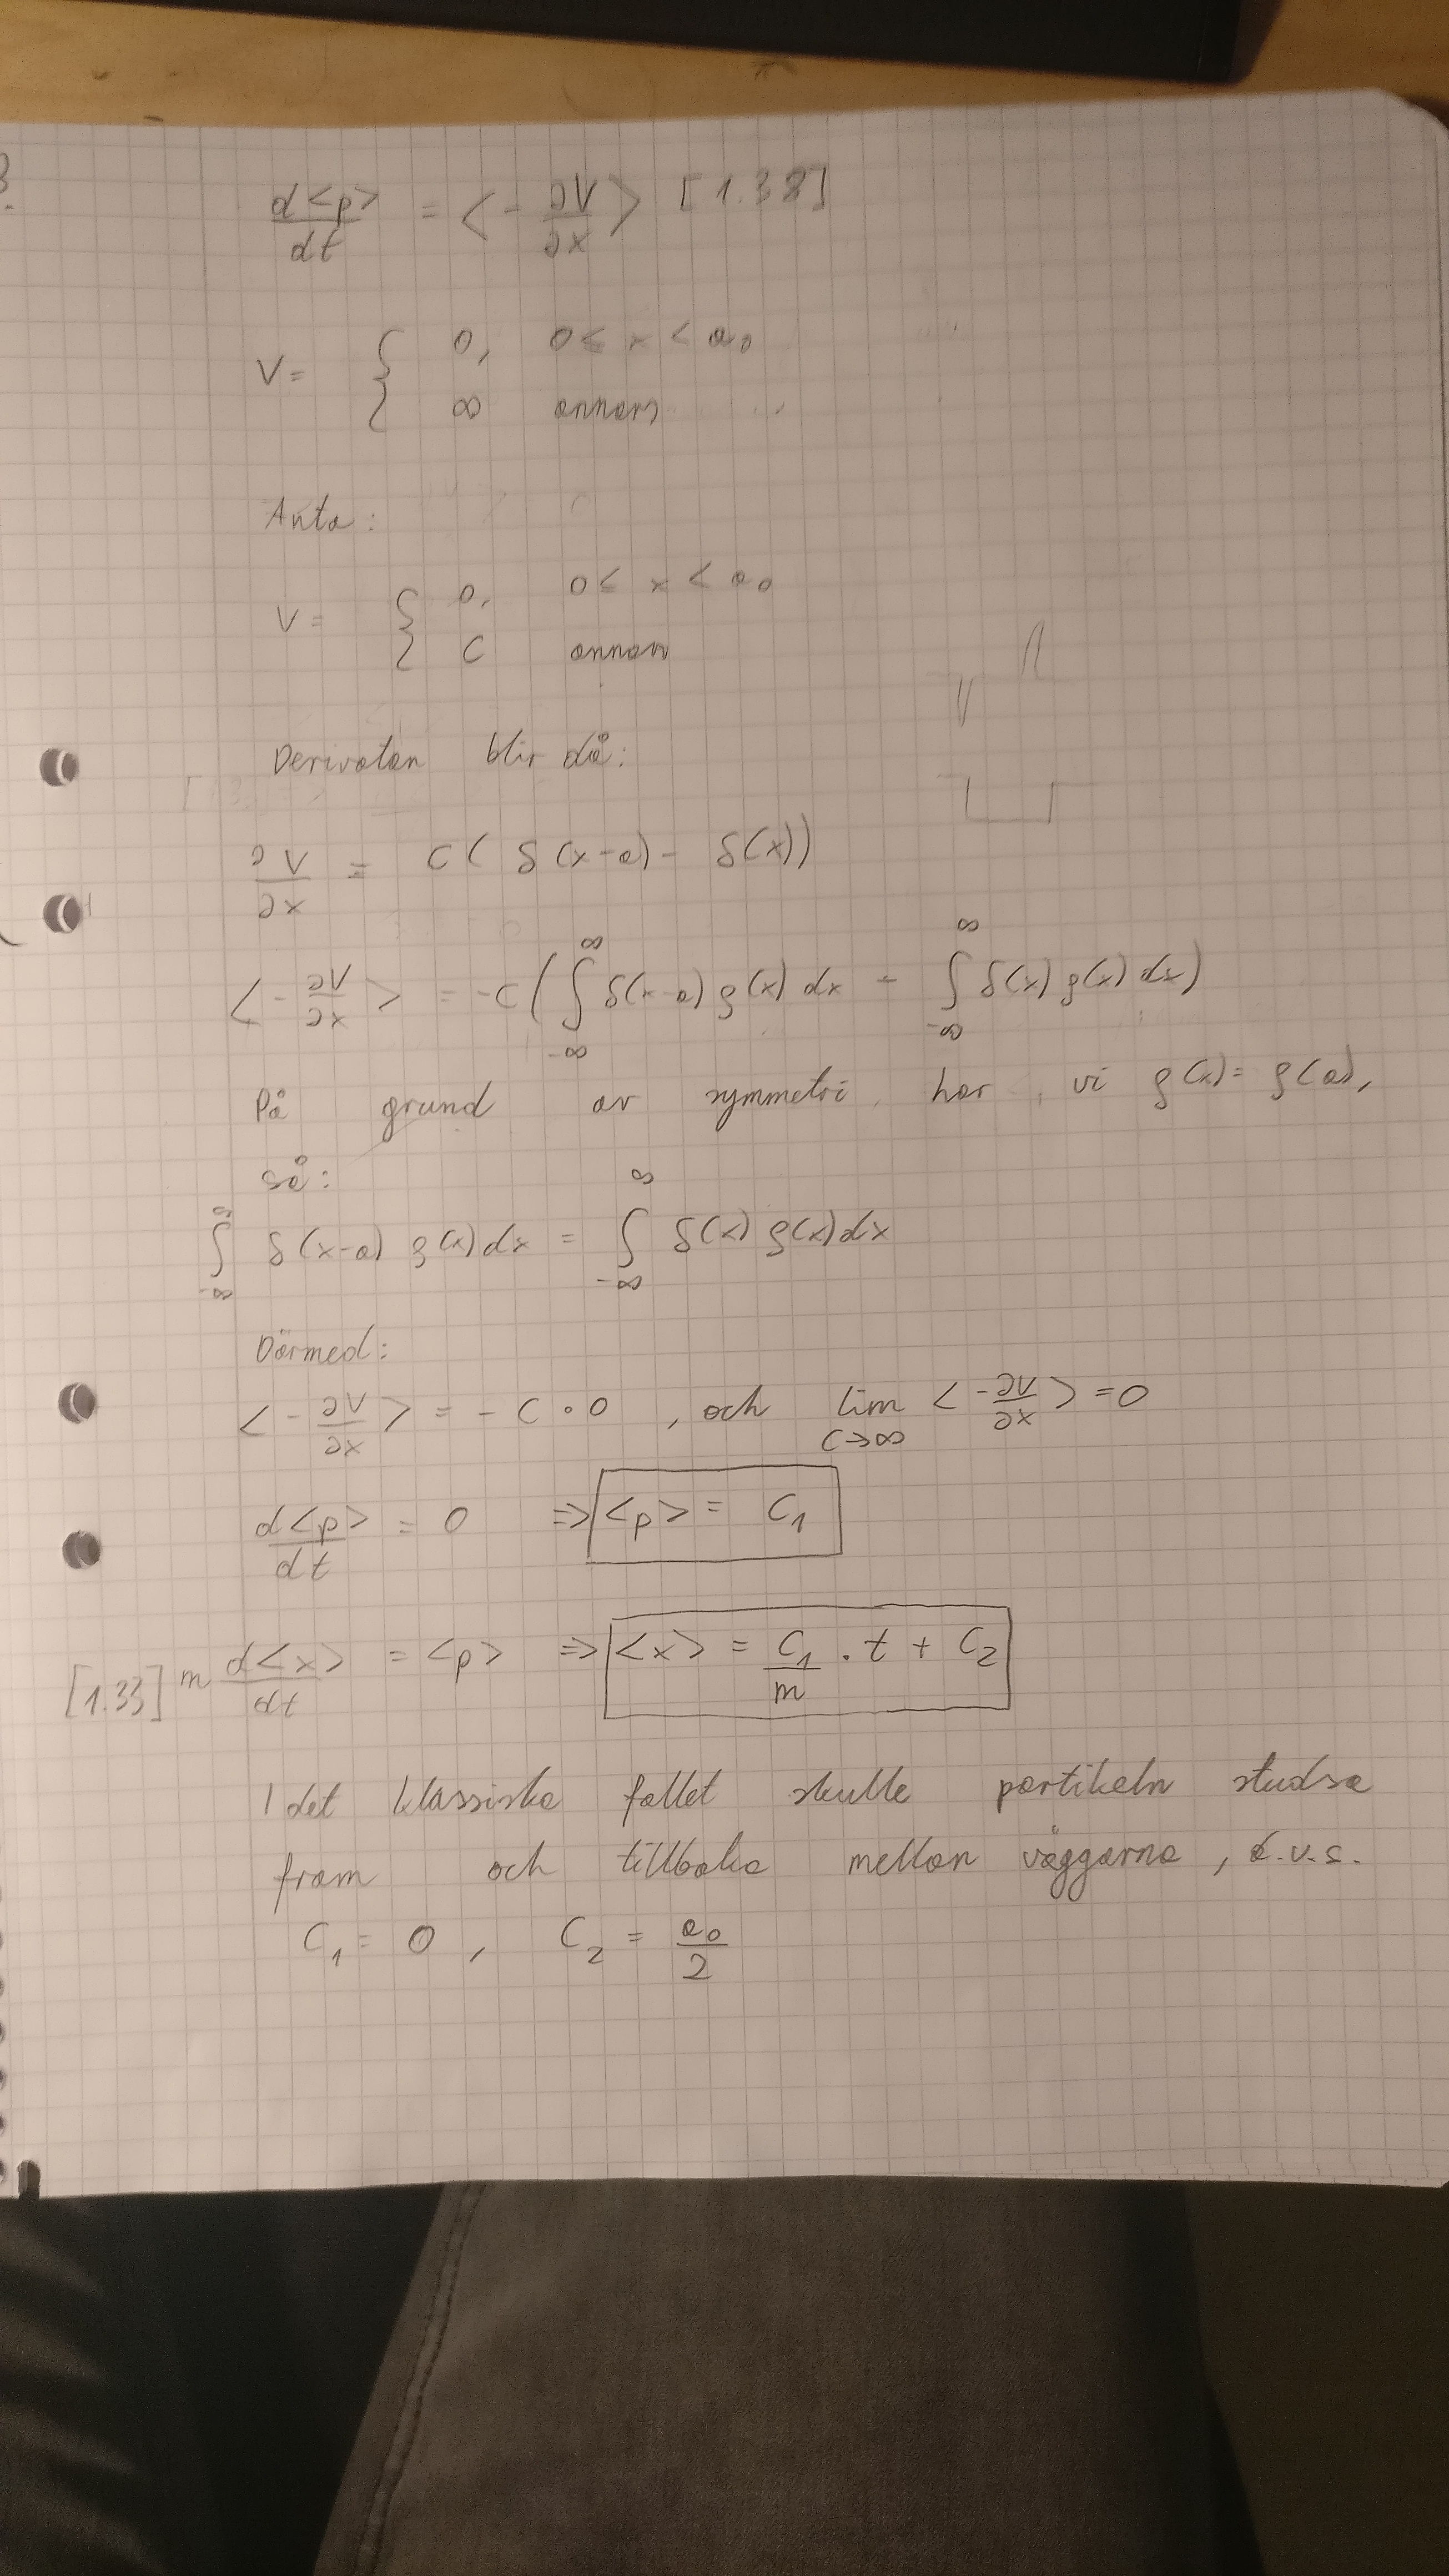 3.
d<p>/dt = <-∂V/∂x> [1.38]
V = { 0, 0 ≤ x < a₀
∞ annars
Anta:
V = { 0, 0 < x < a₀
C annars
Derivatan blir då:
∂V/∂x = C( δ(x-a) - δ(x))
<-∂V/∂x> = -C( ∫_{-∞}^{∞} δ(x-a) ρ(x) dx - ∫_{-∞}^{∞} δ(x) ρ(x) dx)
På grund av symmetri har vi ρ(x) = ρ(a),
så:
∫_{-∞}^{∞} δ(x-a) ρ(x) dx = ∫_{-∞}^{∞} δ(x) ρ(x) dx
Därmed:
<-∂V/∂x> = - C · 0 , och lim_{C→∞} <-∂V/∂x> = 0
d<p>/dt = 0 => <p> = C₁
[1.33] m d<x>/dt = <p> => <x> = C₁/m · t + C₂
I det klassiska fallet skulle partikeln studsa
fram och tillbaka mellan väggarna, d.v.s.
C₁ = 0 , C₂ = a₀/2